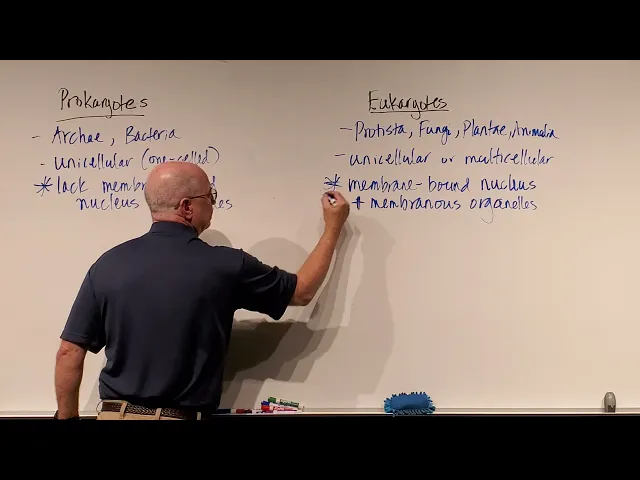 Prokaryotes
- Archae, Bacteria
- Unicellular (one-celled)
* lack
nucleus
Eukaryotes
- Protista, Fungi, Plantae, Animalia
- unicellular or multicellular
* membrane-bound nucleus
+ membranous organelles